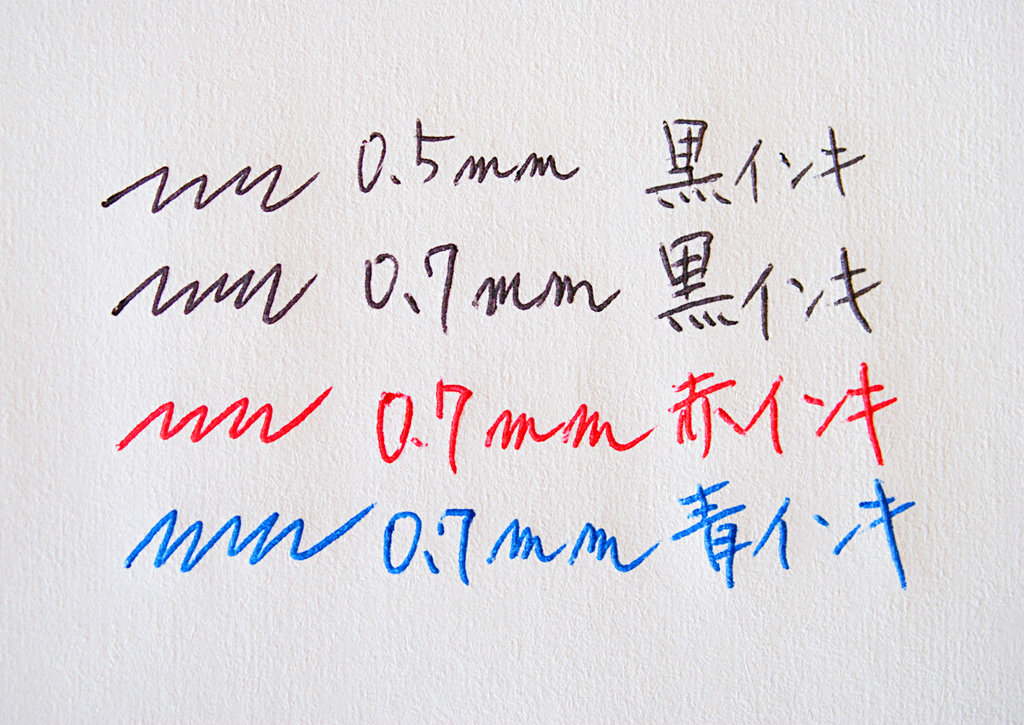 0.5mm 黒インキ
0.7mm 黒インキ
0.7mm 赤インキ
0.7mm 青インキ